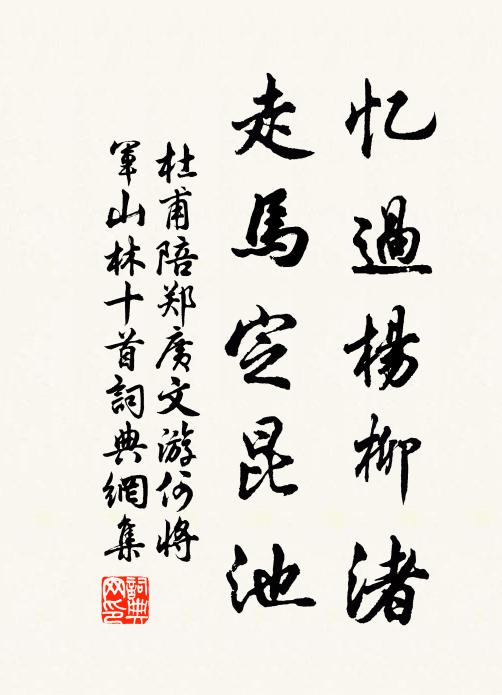 忆過楊柳渚
走馬定昆池
杜甫陪郑廣文游何將
軍山林十首詞典網集
詞典網印